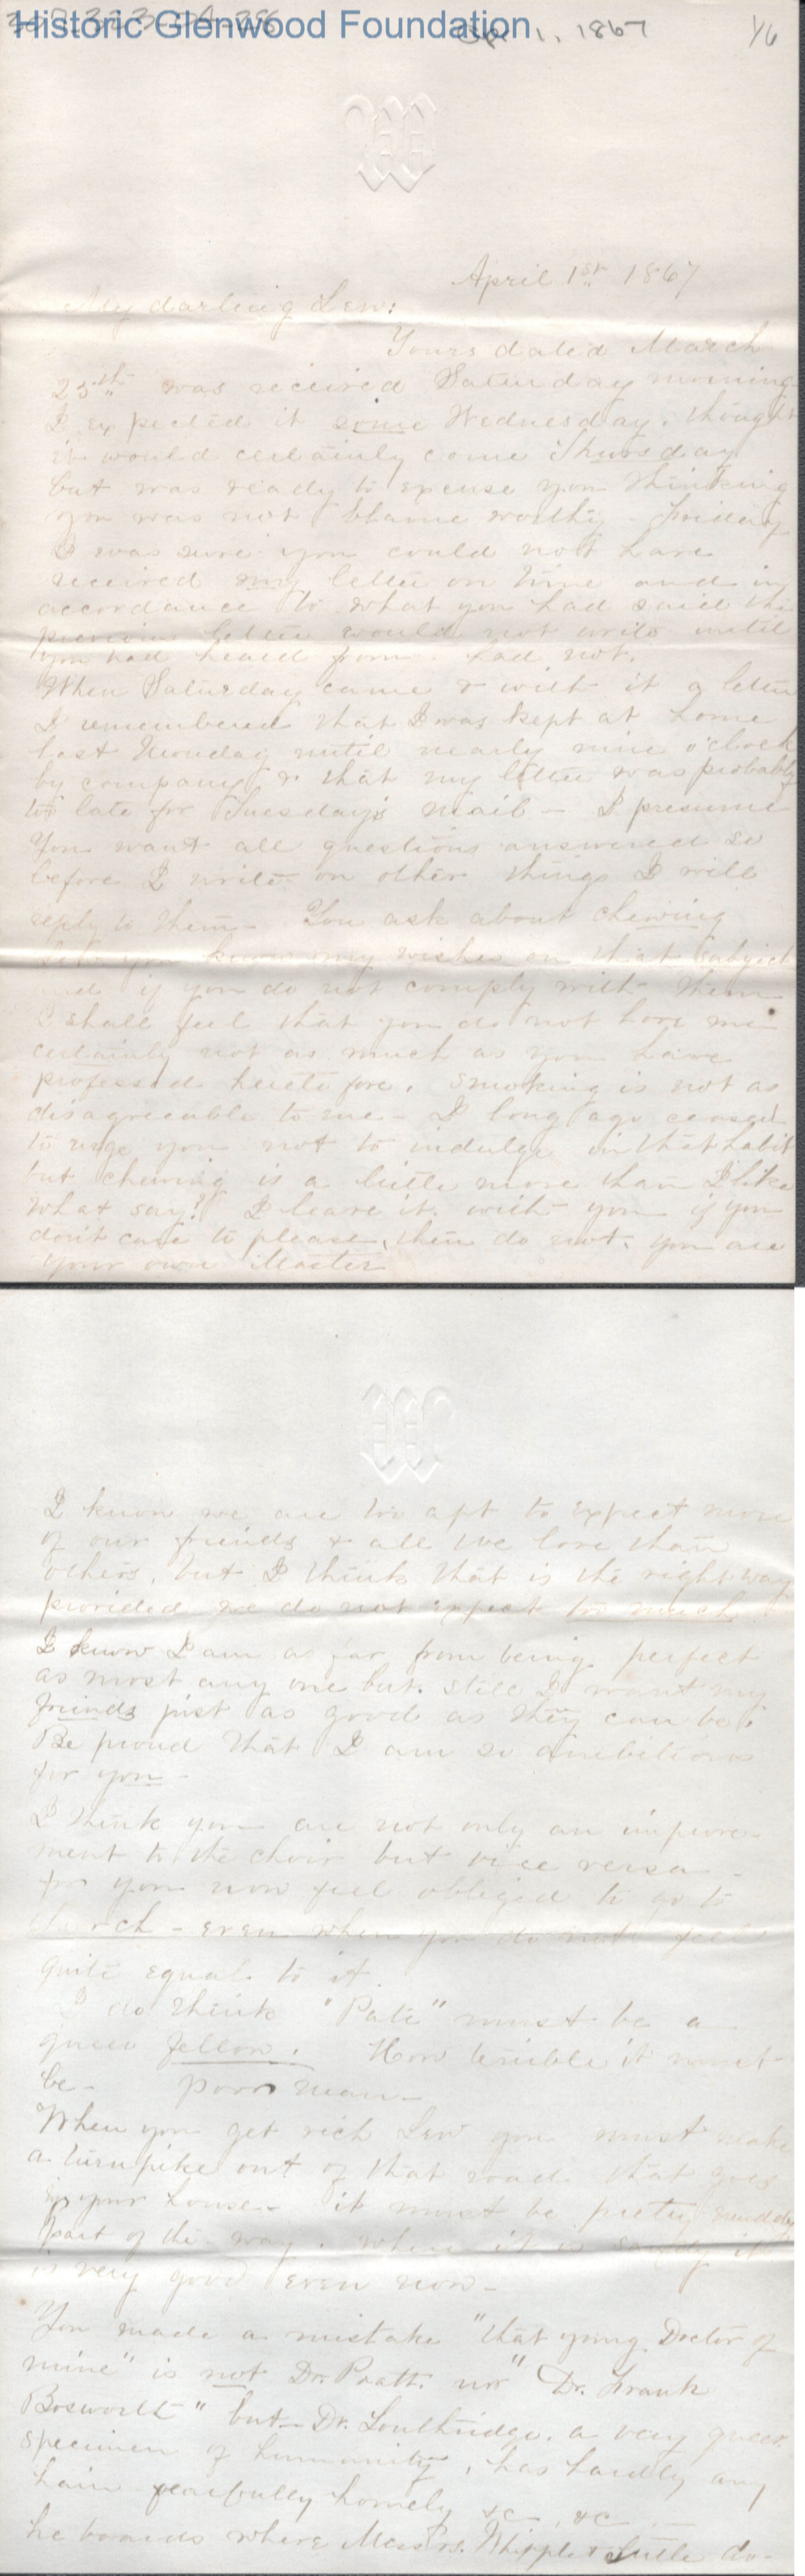 Historic Glenwood Foundation
Apr 1, 1867
1/6
April 1st 1867
My darling Lew:
Yours dated March
25th was received Saturday morning
I expected it some Wednesday, thought
it would certainly come Thursday
but was ready to excuse you thinking
you was not blame worthy - Friday
I was sure you could not have
received my letter on time and in
accordance to what you had said in
previous letter would not write until
you had heard from. had not.
When Saturday came & with it a letter
I remembered that I was kept at home
last Monday until nearly nine o'clock
by company & that my letter was probably
too late for Tuesday's mail - I presume
You want all questions answered so
before I write on other things I will
reply to them - You ask about chewing
Lew you know my wishes on that subject
and if you do not comply with them
I shall feel that you do not love me
certainly not as much as you have
professed heretofore. Smoking is not as
disagreeable to me - I long ago ceased
to urge you not to indulge in that habit
but chewing is a little more than I like
What say? I leave it with you if you
don't care to please, then do not, you are
your own Master
I know we are too apt to expect more
of our friends & all we love than
others, but I think that is the right way
provided we do not expect too much.
I know I am as far from being perfect
as most any one but still I want my
friends just as good as they can be.
Be proud that I am so ambitious
for you -
I think you are not only an improve-
ment to the choir but vice versa -
for you now feel obliged to go to
church - even when you do not feel
quite equal to it
I do think "Pate" must be a
queer fellow. How terrible it must
be - poor man -
When you get rich Lew you must make
a turnpike out of that road that goes
by your house - it must be pretty muddy
part of the way. when it is sandy it
is very good even now -
You made a mistake "that young Doctor of
mine" is not Dr. Pratt. nor "Dr. Frank
Bosworth" but Dr. Louthridge. a very queer
specimen of humanity, has hardly any
hair fearfully homely &c, &c -
he boards where Messrs. Whipple & Tuttle do -